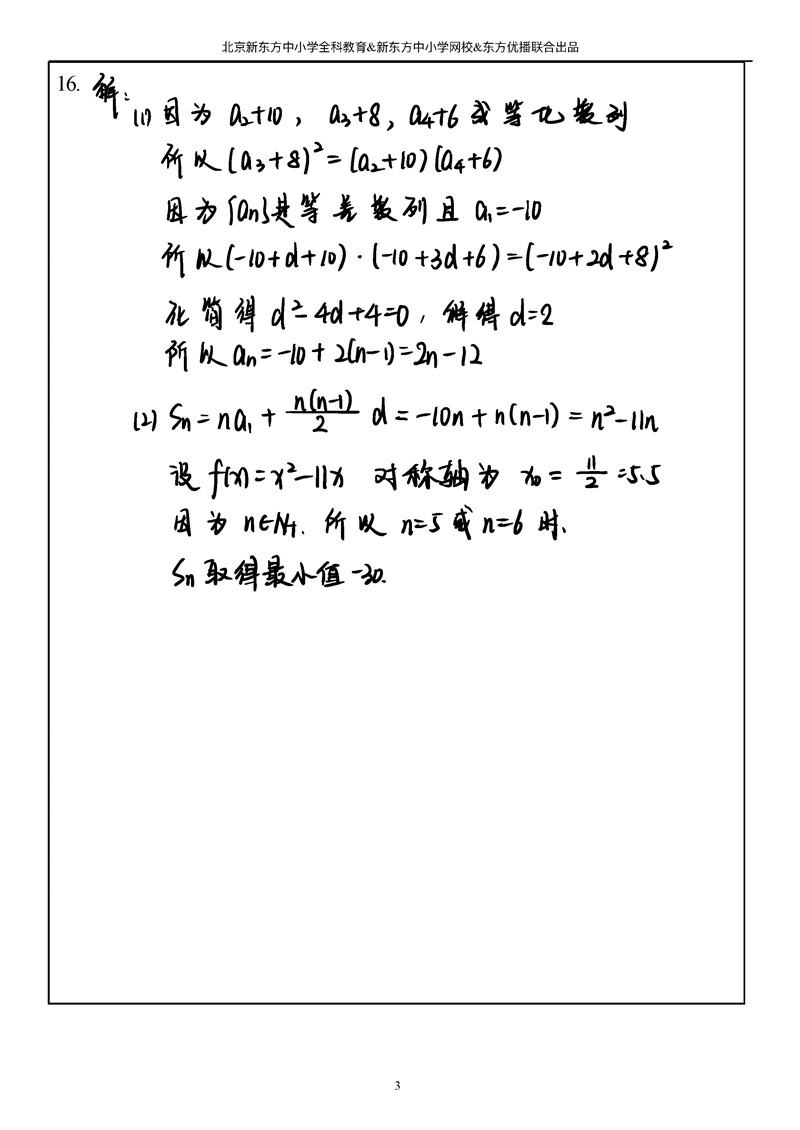 北京新东方中小学全科教育&新东方中小学网校&东方优播联合出品
16. 解:
(1) 因为 a₂+10, a₃+8, a₄+6 成等比数列
所以 (a₃+8)²=(a₂+10)(a₄+6)
因为{an}是等差数列且 a₁=-10
所以(-10+d+10)·(-10+3d+6)=(-10+2d+8)²
化简得 d²-4d+4=0, 解得 d=2
所以 an=-10+2(n-1)=2n-12
(2) Sn=na₁+ n(n-1)/2 d=-10n+n(n-1)=n²-11n
设 f(x)=x²-11x 对称轴为 x₀= 11/2 =5.5
因为 n∈N+. 所以 n=5 或 n=6 时,
Sn 取得最小值 -30.
3